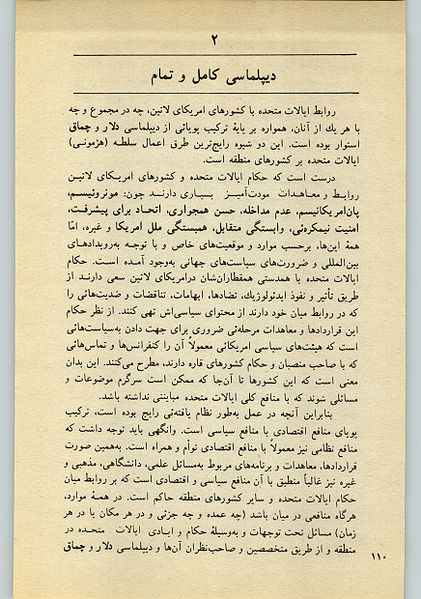 ۲
دیپلماسی کامل و تمام
روابط ایالات متحده با کشورهای امریکای لاتین، چه در مجموع و چه
با هر یك از آنان، همواره بر پایهٔ ترکیب پویائی از دیپلماسی دلار و چماق
استوار بوده است. این دو شیوه رایج‌ترین طرق اعمال سلطـه (هژمونی)
ایالات متحده بر کشورهای منطقه است.
درست است که حکام ایالات متحده و کشورهای امریکای لاتیـن
روابط و معـاهـدات مودت‌آمیـز بسیـاری دارنـد چون: مونروئیسم،
پان‌امریکانیسم، عدم مداخله، حسن همجواری، اتحـاد برای پیشـرفت،
امنیت نیمکره‌ئی، وابستگی متقابل، همبستگی ملل امریکا و غیره، امّا
همهٔ این‌ها، برحسب موارد و موقعیت‌های خاص و با توجـه به‌رویدادهـای
بین‌المللی و ضرورت‌های سیاست‌های جهانی به‌وجود آمـده اسـت. حکام
ایالات متحده با همدستی همقطاران‌شان درامریکای لاتین سعی دارنـد از
طریق تأثیر و نفوذ ایدئولوژیك، تضادها، ابهامات، تناقضات و ضدیت‌هائی را
که در روابط میان خود دارند از محتوای سیاسی‌اش تهی کنند. از نظر حکام
این قراردادها و معاهدات مرحله‌ئی ضروری برای جهت دادن به‌سیاست‌هائی
است که هیئت‌های سیاسی امریکائی معمولاً آن را کنفرانس‌ها و تماس‌هائی
که با صاحب منصبان و حکام کشورهای قاره دارند، مطرح می‌کنند. این بدان
معنی است که این کشورها تا آن‌جا که ممکن است سرگرم موضوعات و
مسائلی شوند که با منافع کلی ایالات متحده مباینتی نداشته باشد.
بنابراین آنچه در عمل به‌طور نظام یافته‌ئی رایج بوده است، ترکیب
پویای منافع اقتصادی با منافع سیاسی است. وانگهی باید توجه داشت که
منافع نظامی نیز معمولاً با منافع اقتصادی توأم و همراه است. به‌همین صورت
قراردادها، معاهدات و برنامه‌های مربوط به‌مسائل علمی، دانشگاهی، مذهبی و
غیره نیز غالباً منطبق با آن منافع سیاسی و اقتصادی است که بر روابط میان
حکام ایالات متحده و سایر کشورهای منطقه حاکم است. در همـهٔ موارد،
هرگاه منافعی در میان باشد (چه عمده و چه جزئی و در هر مکان یا در هر
زمان) مسائل تحت توجهات و به‌وسیلهٔ حکام و ایـادی ایالات متحـده در
منطقه و از طریق متخصصین و صاحب‌نظران آن‌ها و دیپلماسی دلار و چماق
۱۱۰